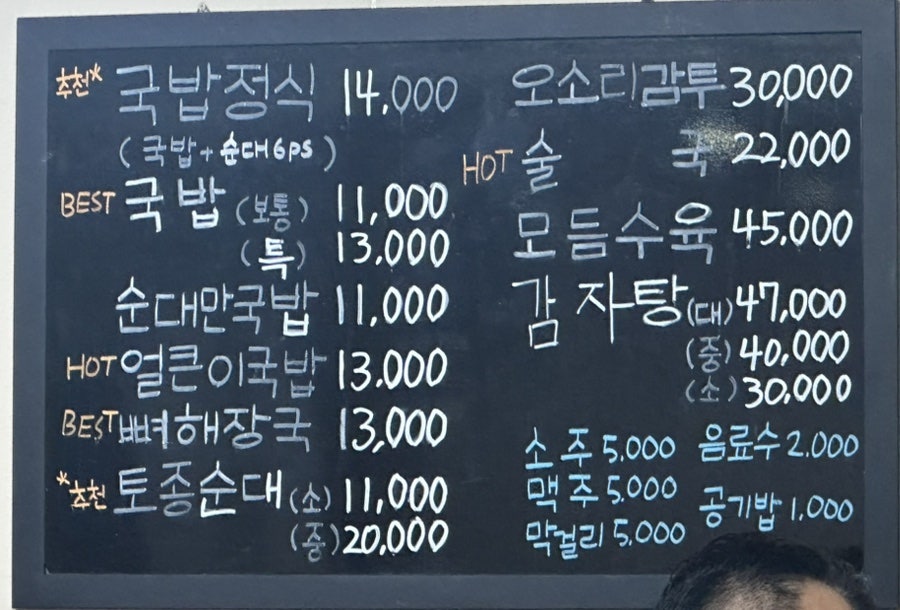 추천* 국밥정식 14,000
(국밥+순대6PS)
BEST 국밥 (보통) 11,000
(특) 13,000
순대만국밥 11,000
HOT 얼큰이국밥 13,000
BEST 뼈해장국 13,000
*추천 토종순대 (소) 11,000
(중) 20,000
오소리감투 30,000
HOT 술국 22,000
모듬수육 45,000
감자탕 (대) 47,000
(중) 40,000
(소) 30,000
소주 5,000 음료수 2,000
맥주 5,000
공기밥 1,000
막걸리 5,000